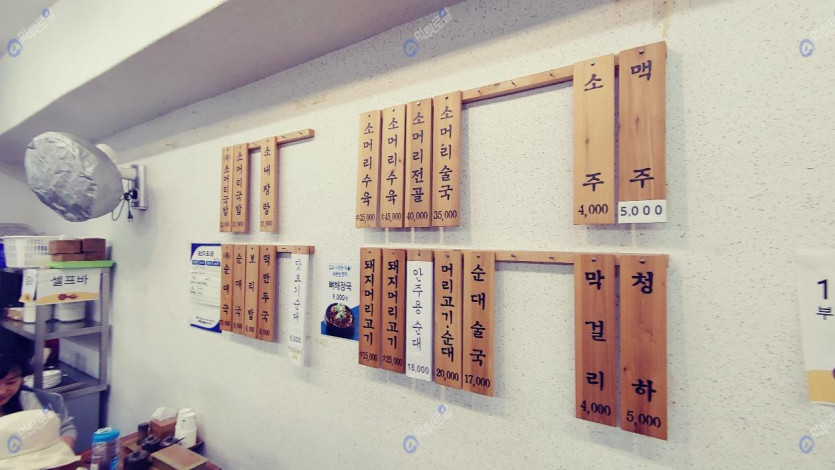 소머리국밥
소머리국밥
소내장탕
소머리수육
中35,000
소머리수육
大45,000
소머리전골
40,000
소머리술국
35,000
소주
4,000
맥주
5,000
순대국
순대국
보리밥
떡만두국
맛보기순대
5,000
뼈해장국
9,000원
돼지머리고기
돼지머리고기
大25,000
안주용순대
18,000
머리고기·순대
20,000
순대술국
17,000
막걸리
4,000
청하
5,000
셀프바
1
부